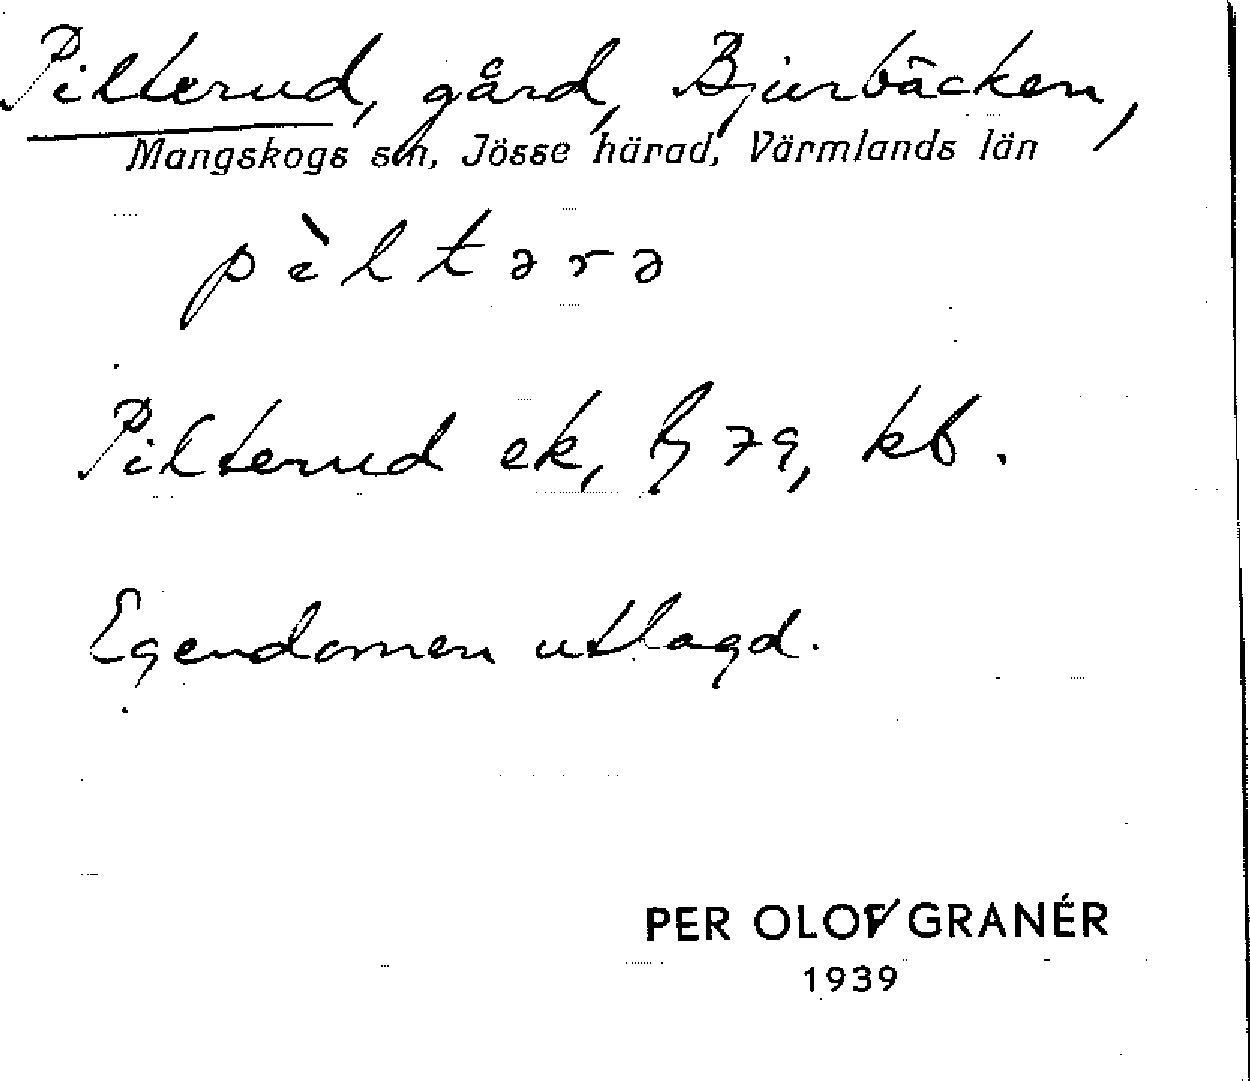 Pilterud, gård, Bjurbäcken,
Mangskogs sn, Jösse härad, Värmlands län
pèltərə
Pilterud ek, 79, kb.
Egendomen utlagd.
PER OLOF GRANÉR
1939